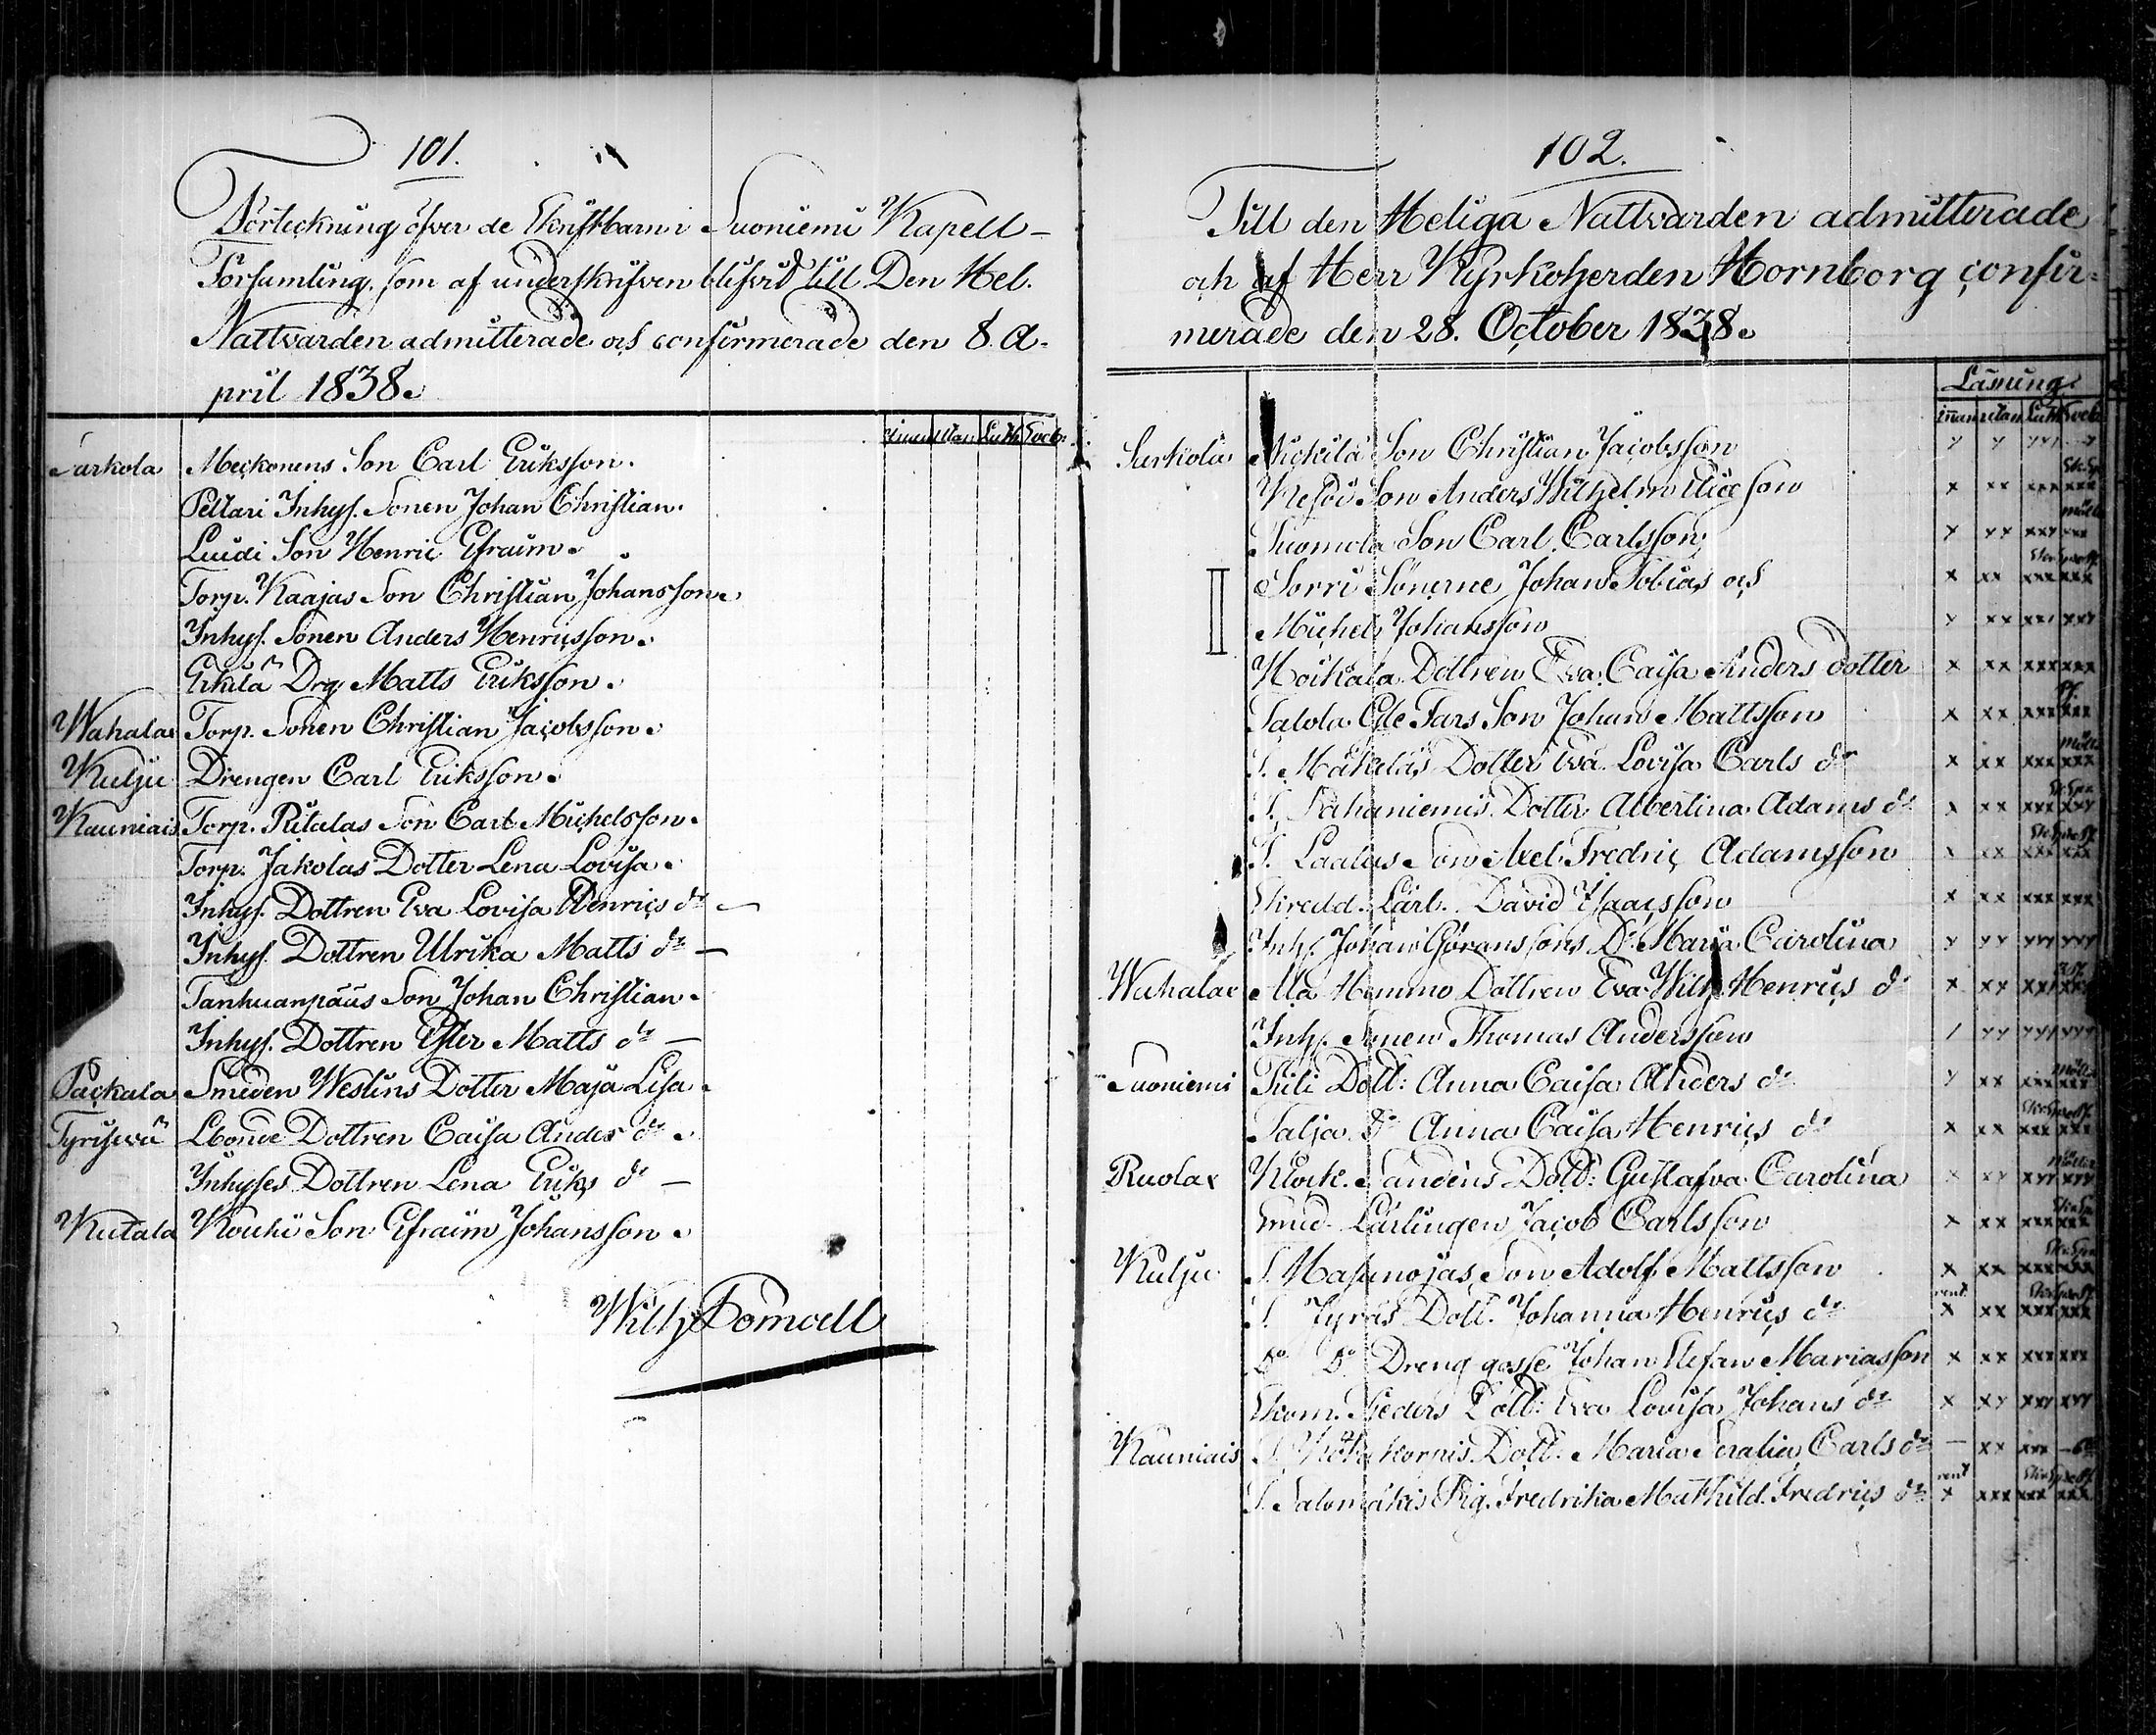 101.
Förteckning öfver de Skriftbarn i Suoniemi Kapell-
Församling, som af underskrifven blifvit till Den Hel.
Nattvarden admitterade och confirmerade den 8 A-
pril 1838.
innan utan Luth. Sveb.
Sarkola Meckonens Son Carl Eriksson.
Pellari Inhys. Sonen Johan Christian.
Luidi Son Henric Efraim.
Torp. Kaajas Son Christian Johansson.
Inhys. Sonen Anders Henricsson.
Erkilä Drg. Matts Eriksson.
Wahalax Torp. Sonen Christian Jacobsson.
Kulju Drengen Carl Eriksson.
Kauniais Torp. Pitalas Son Carl Michelsson.
Torp. Jakolas Dotter Lena Lovisa.
Inhys. Dottren Eva Lovisa Henrics dr
Inhys. Dottren Ulrika Matts dr
Tanhuanpääs Son Johan Christian.
Inhys. Dottren Ester Matts dr
Packala Smeden Westlins Dotter Maja Lisa.
Tyrisevä Dottren Caisa Anders dr.
Inhyses Dottren Lena Eriks dr
Kutala Kouhi Son Efraim Johansson.
Wilh Domvell
102.
Till den Heliga Nattvarden admitterade
och af Herr Kyrkoherden Hornborg confir-
merade den 28. October 1838.
Läsning
innan utan Luth. Sveb.
Sarkola Nickilä Son Christian Jacobsson
Son Anders Wilhelm
Tuomola Son Carl Carlsson
Sorri Sönerne Johan Tobias och
Michel Johansson
Hoikala Dottren Eva Caisa Anders dotter
Salola Son Johan Mattsson
T. Mäkeläs Dotter Eva Lovisa Carls dr
T. Dotter Albertina Adams dr
T. Laalas Son Axel Fredric Adamsson
Skredd. Lärl. David Isaacsson
Inh. Johan Göranssons Dr Maria Carolina
Wahalax Ala Hemmo Dottren Eva Wilh. Henrics dr
Inh. Sonen Thomas Andersson
Suoniemi Dott: Anna Caisa Anders dr
Talja Dr Anna Caisa Henrics dr
Ruolax Klock. Sandens Dott: Gustafva Carolina
Smed Lärlingen Jacob Carlsson
Kulju T. Son Adolf Mattsson
T. Jyräs Dott. Johanna Henrics dr
Do Do Dreng gosse Johan Stefan Mariasson
Skom. Dott: Eva Lovisa Johans dr
Kauniais T. Dott. Maria Serafia Carls dr
T. Salomäkis Pig. Fredrika Mathild. Fredrics dr